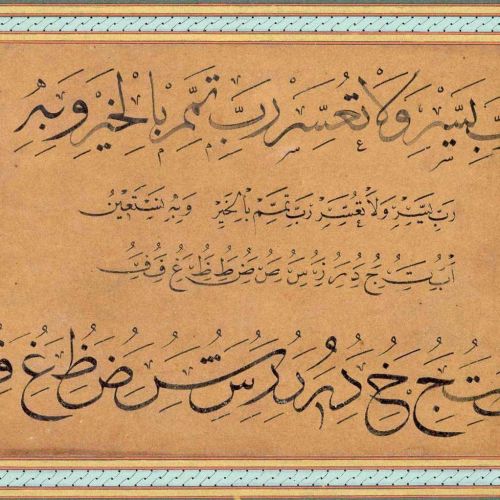 رَبِّ يَسِّرْ وَلَا تُعَسِّرْ رَبِّ تَمِّمْ بِالْخَيْرِ وَبِهِ
رَبِّ يَسِّرْ وَلَا تُعَسِّرْ رَبِّ تَمِّمْ بِالْخَيْرِ وَبِهِ نَسْتَعِينُ
ا ب ت ج د ر ز س ص ض ط ظ غ ف ق
ت ج خ د ر س ش ض ظ غ